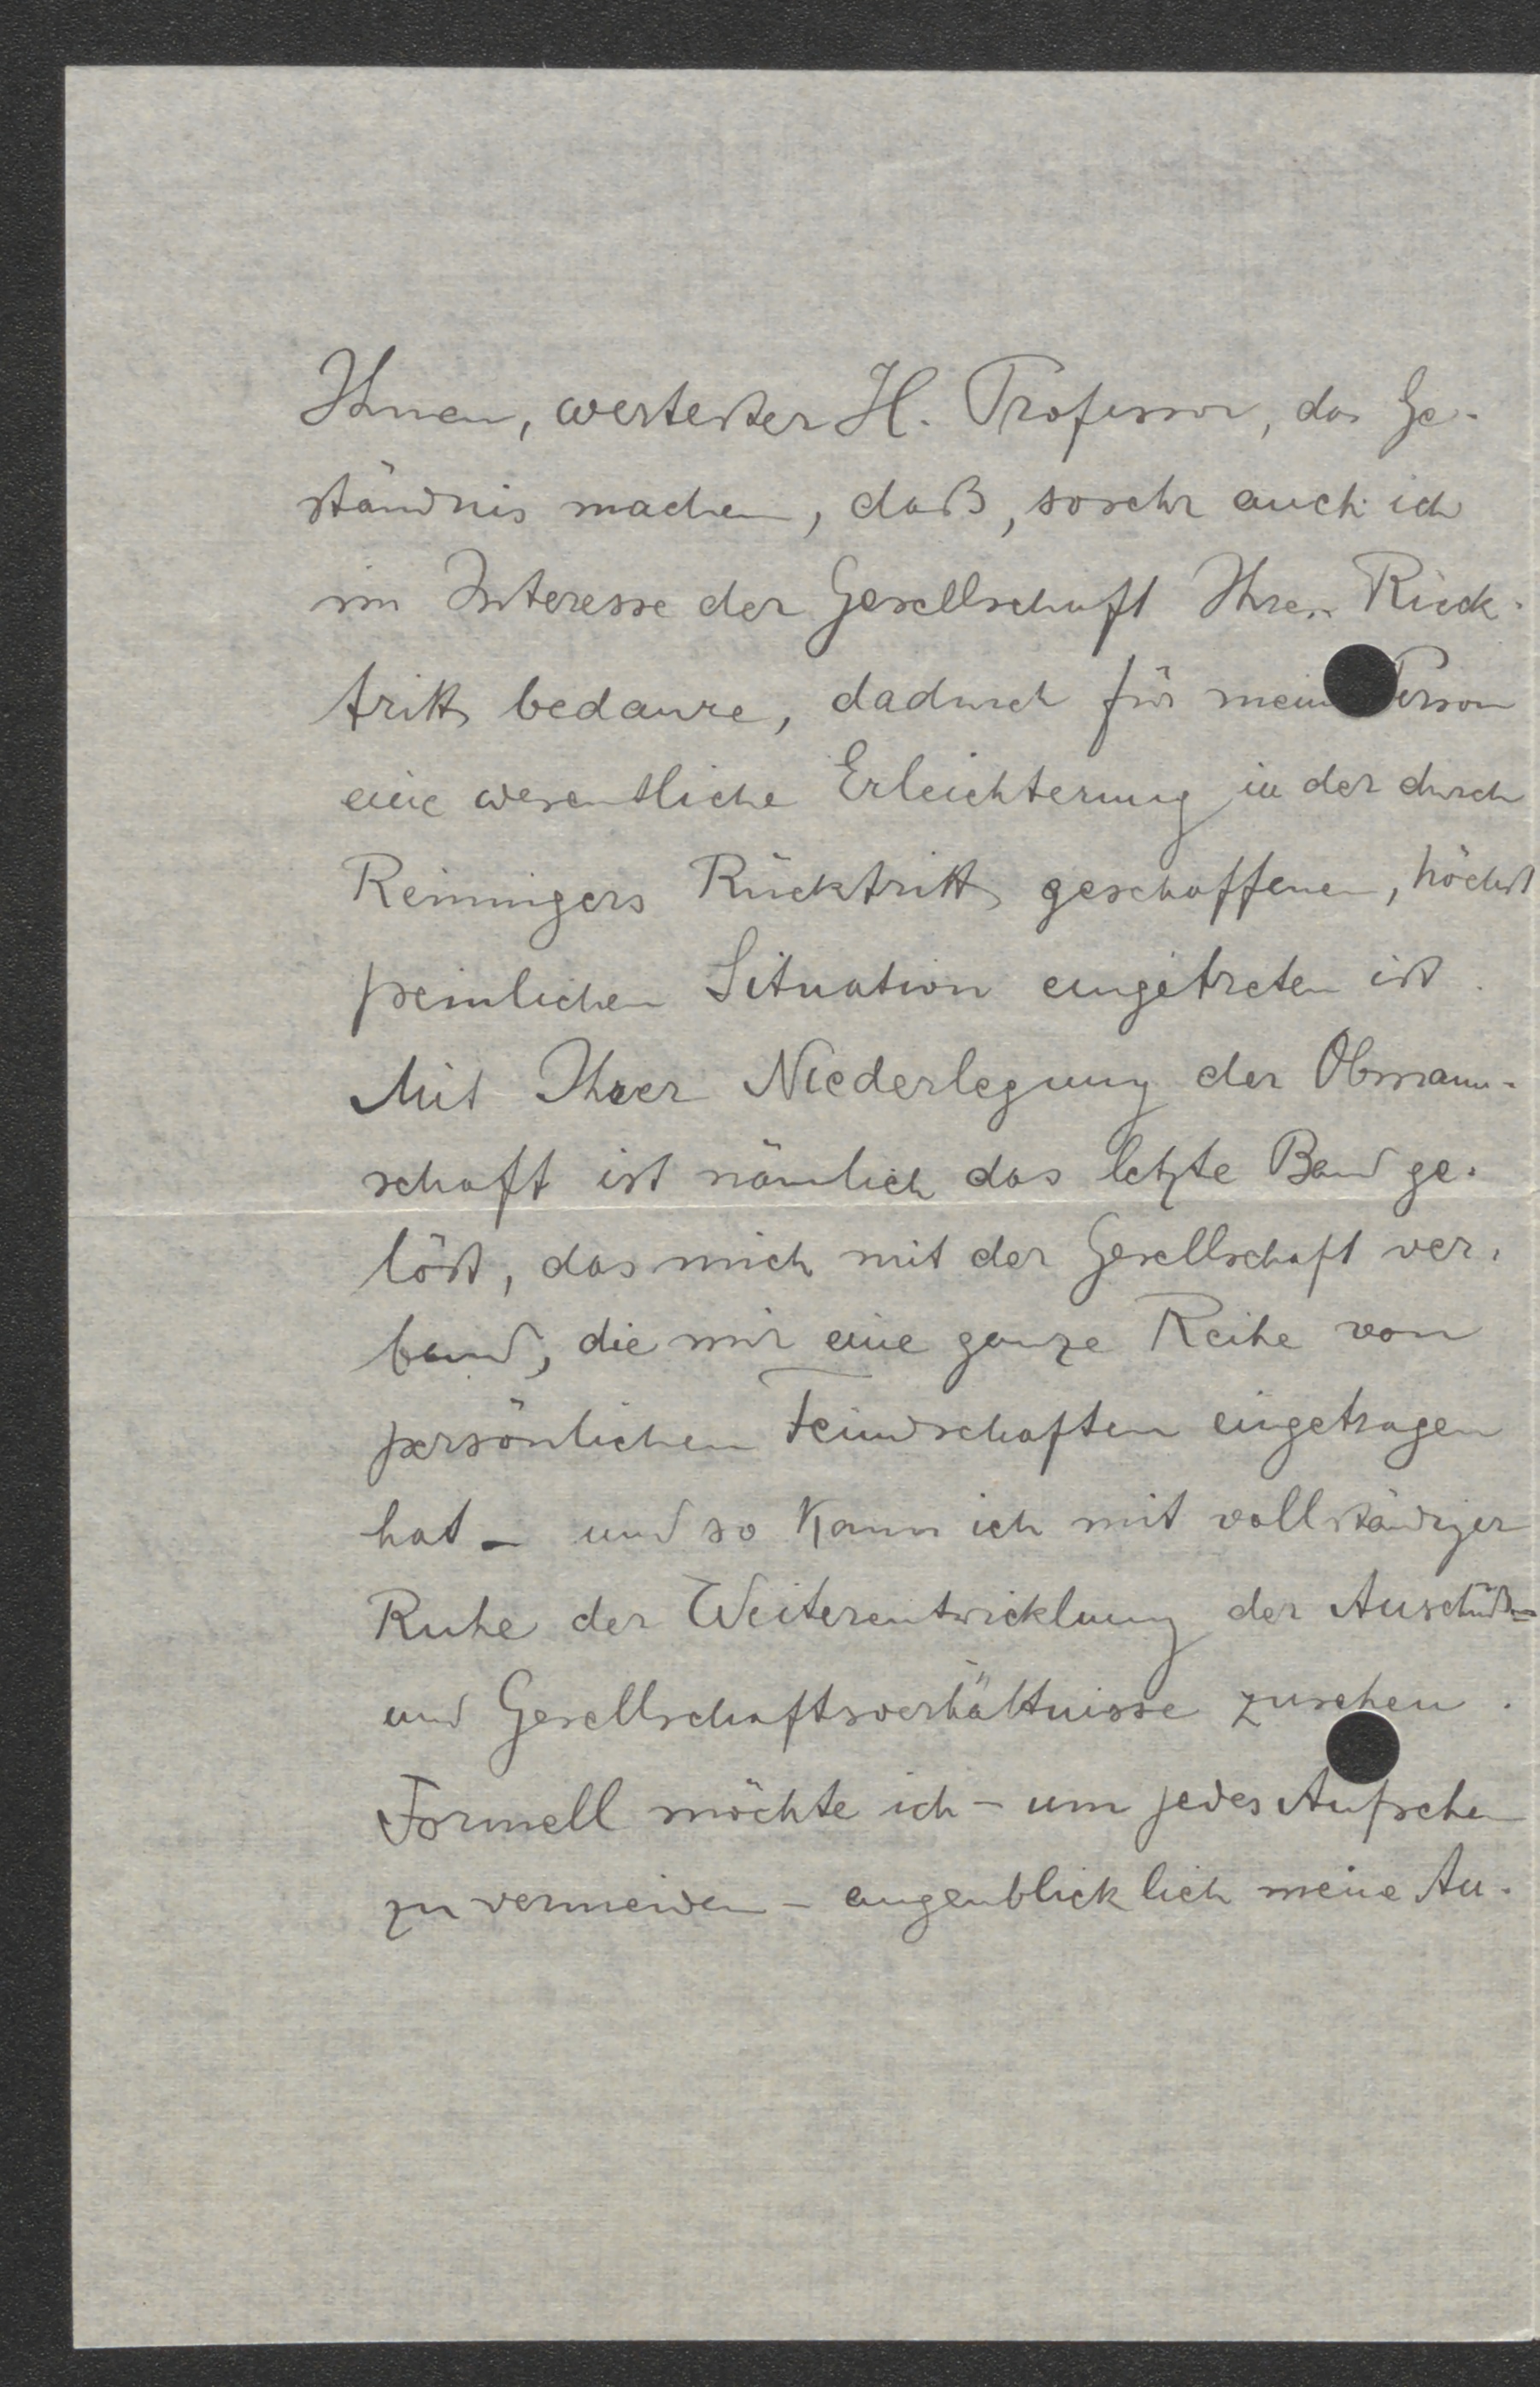 Ihnen, wertester H. Professor, das Ge-
ständnis machen, daß, sosehr auch ich
im Interesse der Gesellschaft Ihren Rück-
tritt bedaure, dadurch für meine Person
eine wesentliche Erleichterung in der durch
Reiningers Rücktritt geschaffenen, höchst
peinlichen Situation eingetreten ist.
Mit Ihrer Niederlegung der Obmann-
schaft ist nämlich das letzte Band ge-
löst, das mich mit der Gesellschaft ver-
band, die mir eine ganze Reihe von
persönlichen Feindschaften eingetragen
hat – und so kann ich mit vollständiger
Ruhe der Weiterentwicklung der Ausschuß=
und Gesellschaftsverhältnisse zusehen.
Formell möchte ich – um jedes Aufsehen
zu vermeiden – augenblicklich meine Au-